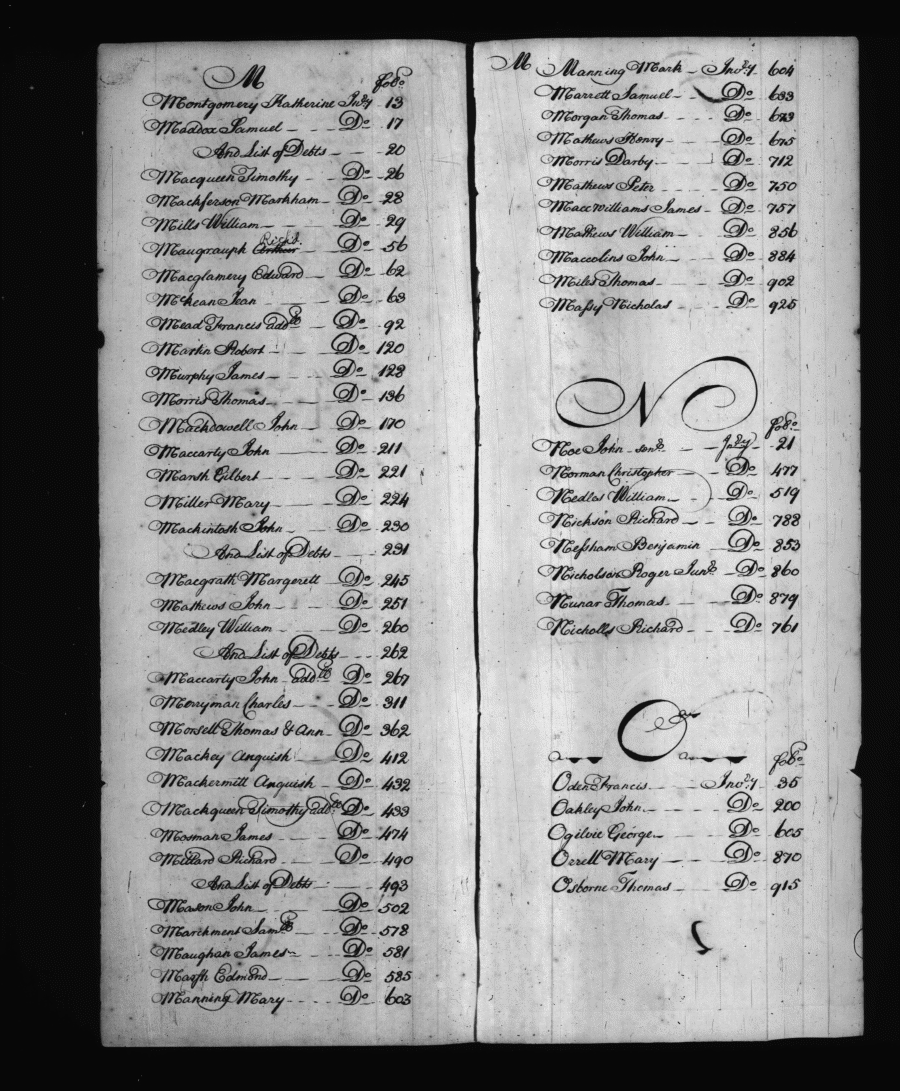 M
fol:o
Montgomery Katherine Inv:y 13
Maddox Samuel Do 17
And List of Debts 20
Macqueen Timothy Do 26
Mackferson Markham Do 28
Mills William Do 29
Rich:d
Maugrauph Arthur Do 56
Macglamery Edward Do 62
Mckean Jean Do 63
Mead Francis add:l Do 92
Martin Robert Do 120
Murphy James Do 128
Morris Thomas Do 136
Mackdowell John Do 170
Maccarty John Do 211
Marsh Gilbert Do 221
Miller Mary Do 224
Mackintosh John Do 230
And List of Debts 231
Macgrath Margerett Do 245
Mathews John Do 251
Medley William Do 260
And List of Debts 262
Maccarty John add:l Do 267
Merryman Charles Do 311
Morsell Thomas & Ann Do 362
Mackey Anguish Do 412
Mackermitt Anguish Do 432
Mackqueen Timothy add:l Do 433
Mosman James Do 474
Millard Richard Do 490
And List of Debts 493
Mason John Do 502
Marchment Sam:l Do 578
Maughan James Do 581
Marsh Edmond Do 585
Manning Mary Do 603
M
Manning Mark Inv:y 604
Marrett Samuel Do 633
Morgan Thomas Do 673
Mathews Henry Do 675
Morris Darby Do 712
Mathews Peter Do 750
Macc Williams James Do 757
Mathews William Do 856
Maccolins John Do 884
Miles Thomas Do 902
Massy Nicholas Do 925
N
fol:o
Noe John sen:r Inv:y 21
Norman Christopher Do 477
Nedles William Do 519
Nickson Richard Do 788
Nessham Benjamin Do 853
Nicholson Roger Jun:r Do 860
Nunar Thomas Do 879
Nicholls Richard Do 761
O
fol:o
Oden Francis Inv:y 35
Oakley John Do 200
Ogilvie George Do 605
Orrell Mary Do 870
Osborne Thomas Do 915